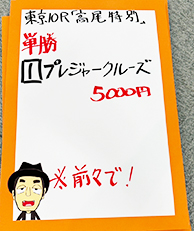 東京10R「高尾特別」
単勝
11プレジャークルーズ
5000円
※前々で!